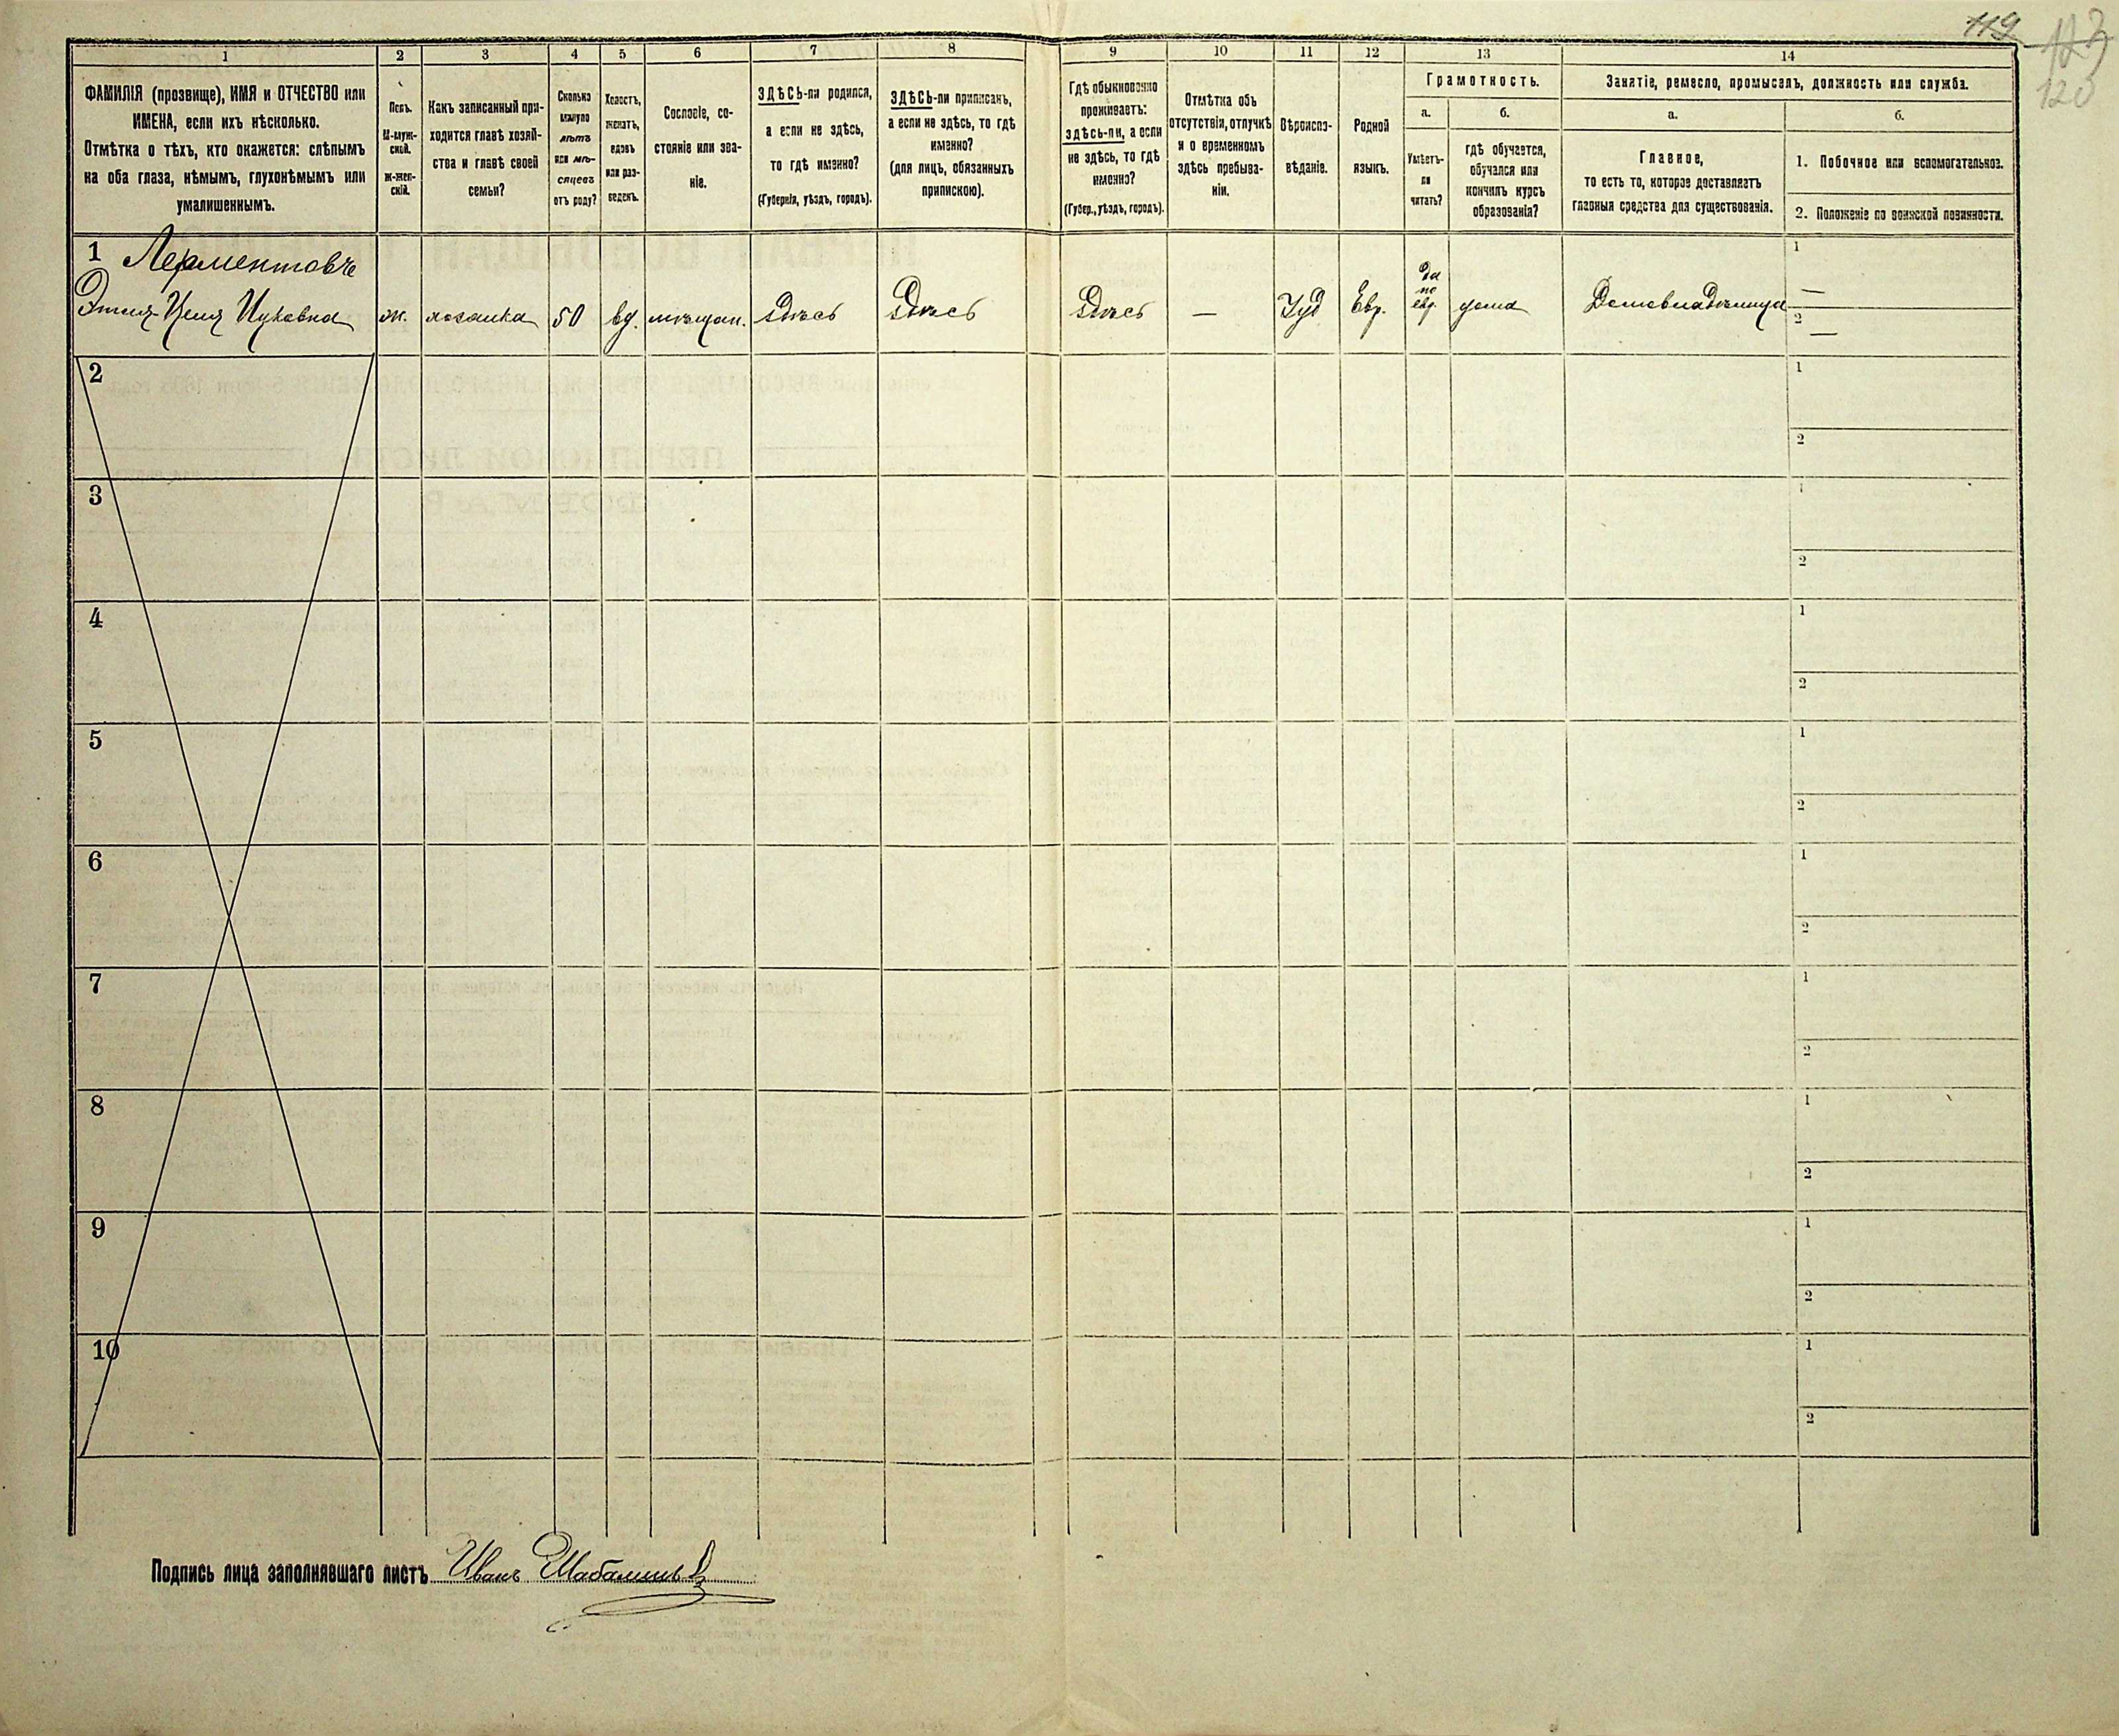 119
123
120
1
2
3
4
5
6
7
8
9
10
11
12
13
14
ФАМИЛІЯ (прозвище), ИМЯ и ОТЧЕСТВО или
ИМЕНА, если ихъ нѣсколько.
Отмѣтка о тѣхъ, кто окажется: слѣпымъ
на оба глаза, нѣмымъ, глухонѣмымъ или
умалишеннымъ.
Полъ.
М-муж-
ской.
Ж-жен-
скій.
Какъ записанный при-
ходится главѣ хозяй-
ства и главѣ своей
семьи?
Сколько
минуло
лѣтъ
или мѣ-
сяцевъ
отъ роду?
Холостъ,
женатъ,
вдовъ
или раз-
веденъ.
Сословіе, со-
стояніе или зва-
ніе.
ЗДѢСЬ-ли родился,
а если не здѣсь,
то гдѣ именно?
(Губернія, уѣздъ, городъ).
ЗДѢСЬ-ли приписанъ,
а если не здѣсь, то гдѣ
именно?
(для лицъ, обязанныхъ
припискою).
Гдѣ обыкновенно
проживаетъ:
здѣсь-ли, а если
не здѣсь, то гдѣ
именно?
(Губер., уѣздъ, городъ).
Отмѣтка объ
отсутствіи, отлучкѣ
и о временномъ
здѣсь пребыва-
ніи.
Вѣроиспо-
вѣданіе.
Родной
языкъ.
Грамотность.
а.
Умѣетъ-
ли
читать?
б.
гдѣ обучается,
обучался или
кончилъ курсъ
образованія?
Занятіе, ремесло, промыселъ, должность или служба.
а.
Главное,
то есть то, которое доставляетъ
главныя средства для существованія.
б.
1. Побочное или вспомогательное.
2. Положеніе по воинской повинности.
1 Лерментовъ
Этля Цепя Ицковна ж. хозяйка 50 вд. мѣщан. Здѣсь Здѣсь Здѣсь — Іуд Евр. да по евр. дома Домовладѣлица 1 — 2 —
2 1 2
3 1 2
4 1 2
5 1 2
6 1 2
7 1 2
8 1 2
9 1 2
10 1 2
Подпись лица заполнявшаго листъ Иванъ